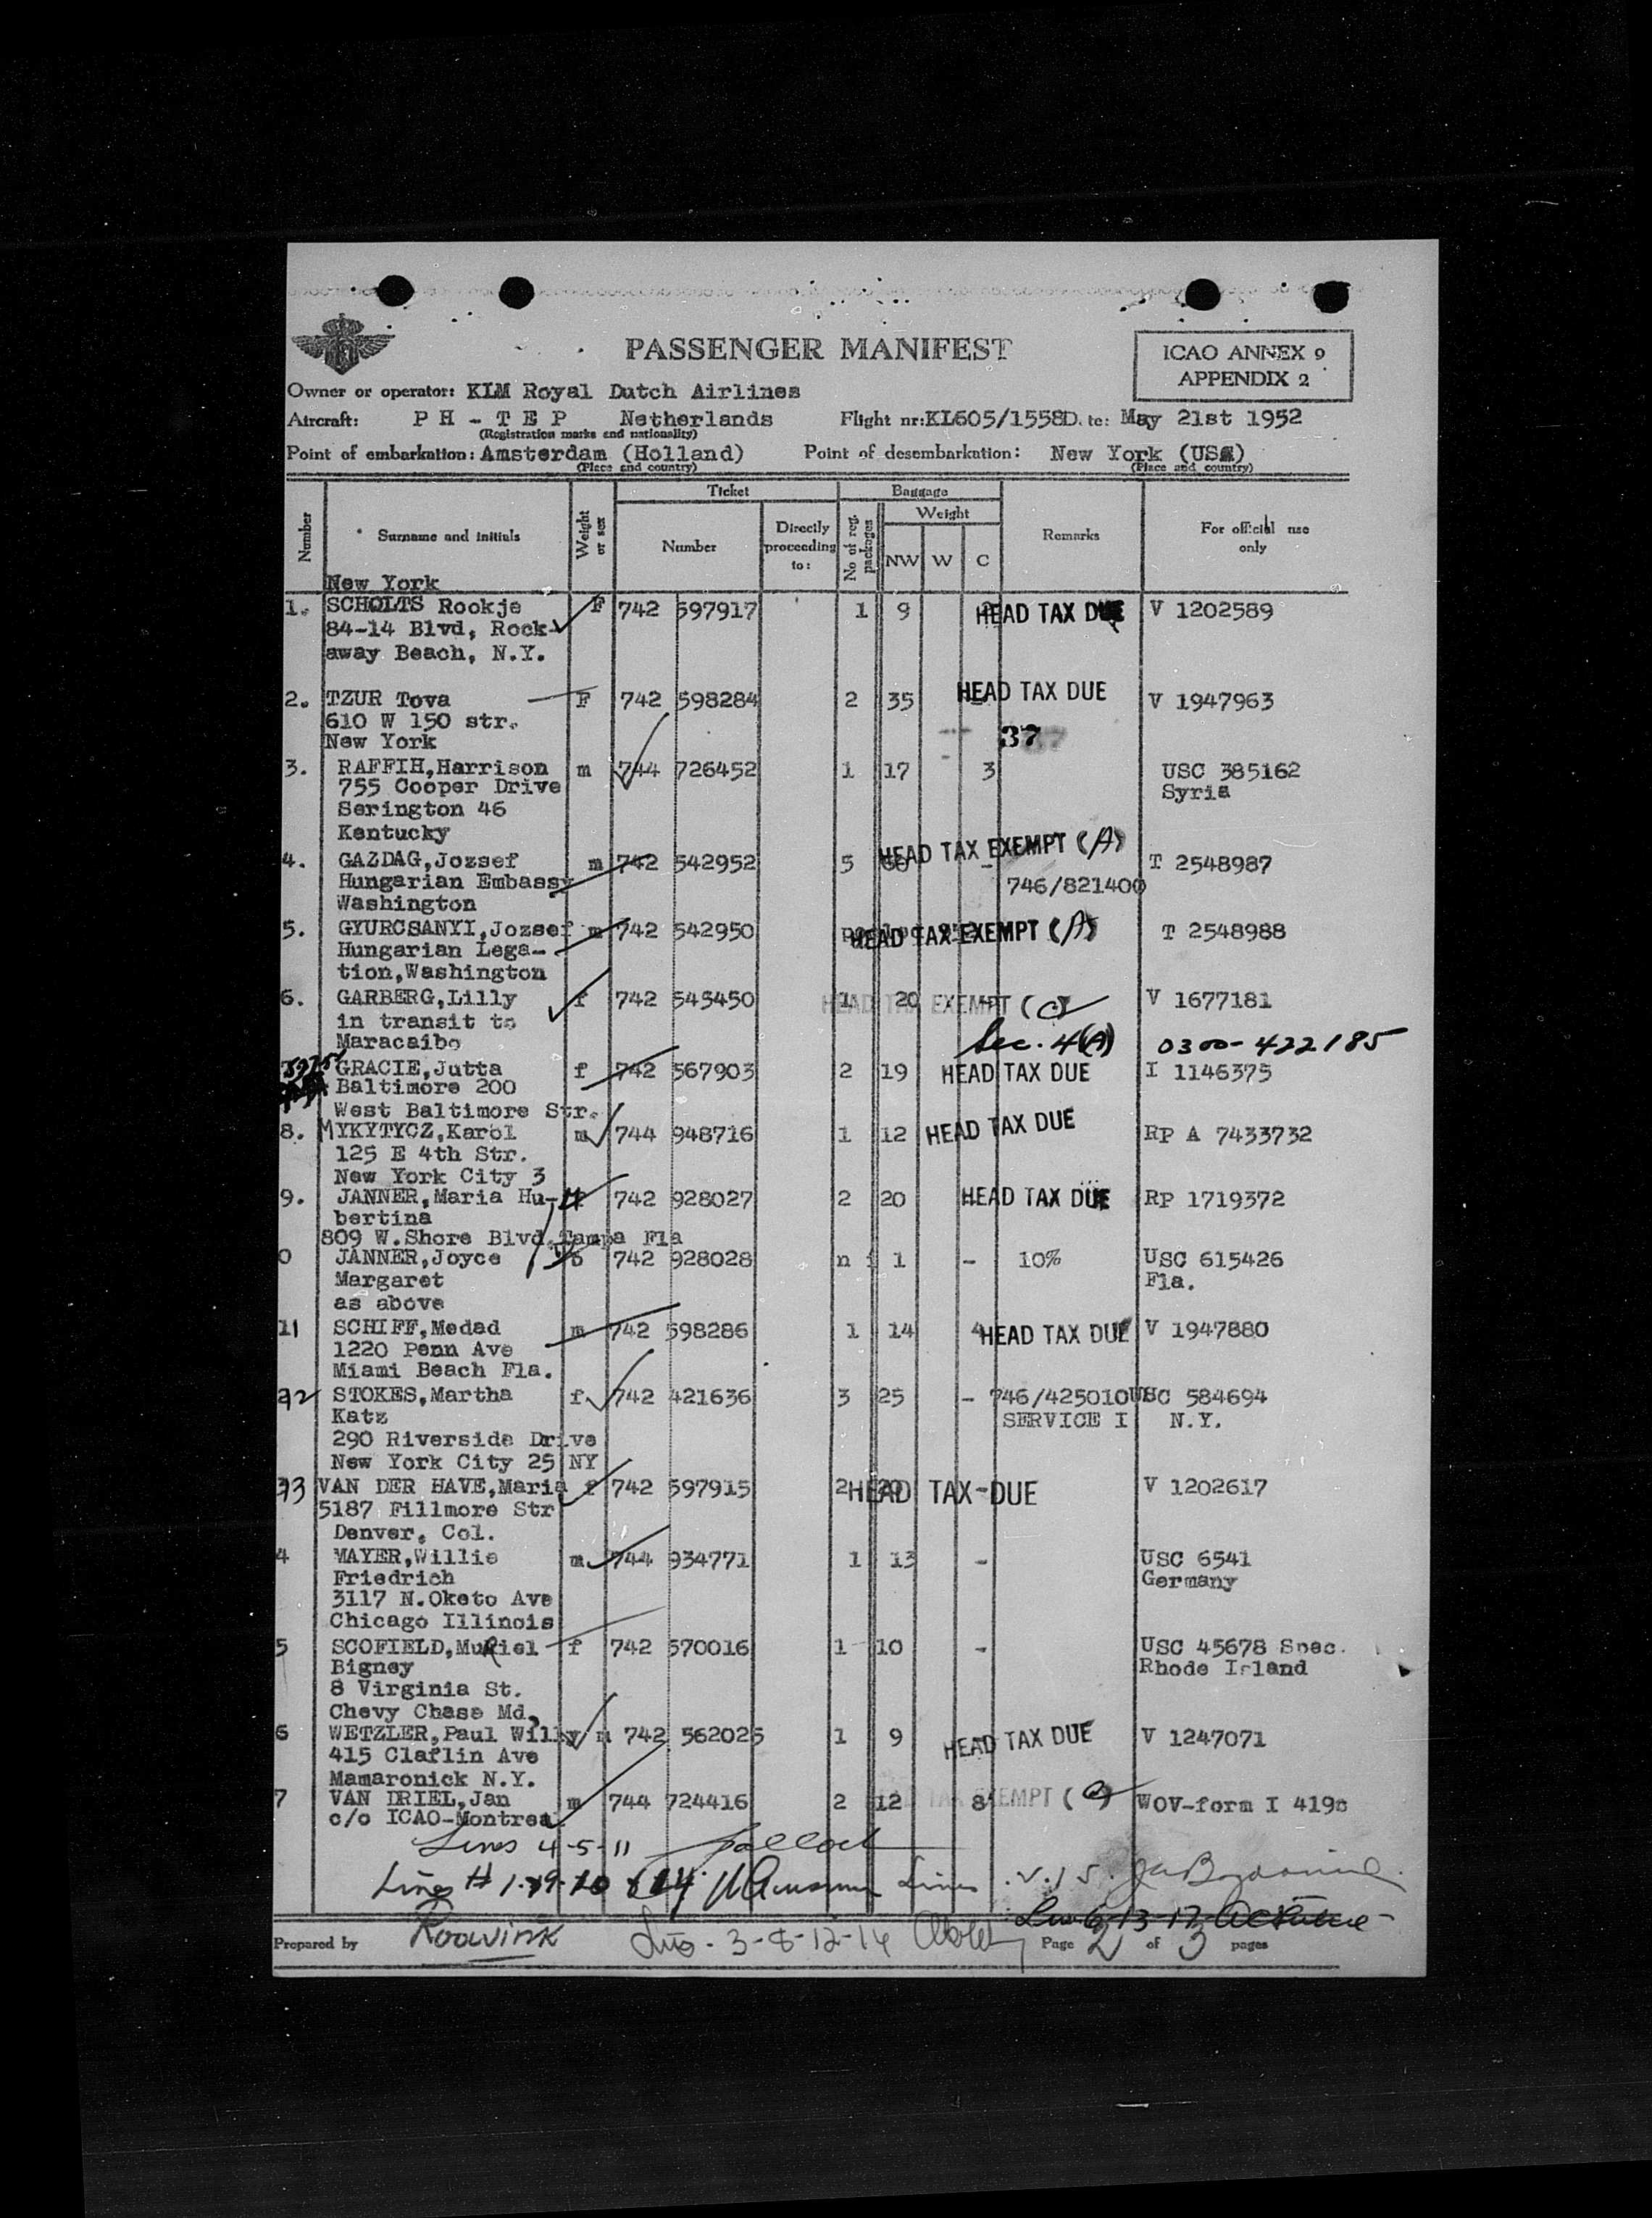 PASSENGER MANIFEST
ICAO ANNEX 9
APPENDIX 2
Owner or operator: KLM Royal Dutch Airlines
Aircraft: PH - TEP Netherlands Flight nr: KL605/1558 D. te: May 21st 1952
(Registration marks and nationality)
Point of embarkation: Amsterdam (Holland) Point of desembarkation: New York (USA)
(Place and country) (Place and country)
Number Surname and initials Weight or sex Ticket Number Directly proceeding to: No of reg. packages Baggage Weight NW W C Remarks For official use only
New York
1. SCHOLTS Rookje F 742 597917 1 9 HEAD TAX DUE V 1202589
84-14 Blvd, Rock-
away Beach, N.Y.
2. TZUR Tova F 742 598284 2 35 HEAD TAX DUE V 1947963
610 W 150 str.
New York 37
3. RAFFIH,Harrison m 744 726452 1 17 3 USC 385162
755 Cooper Drive Syria
Serington 46
Kentucky
4. GAZDAG,Jozsef m 742 542952 5 HEAD TAX EXEMPT (A) T 2548987
Hungarian Embassy 746/821400
Washington
5. GYURCSANYI,Jozsef m 742 542950 HEAD TAX EXEMPT (A) T 2548988
Hungarian Lega-
tion,Washington
6. GARBERG,Lilly f 742 543450 1 20 HEAD TAX EXEMPT (C) V 1677181
in transit to
Maracaibo Sec. 4(A) 0300-422185
GRACIE,Jutta f 742 567903 2 19 HEAD TAX DUE I 1146375
Baltimore 200
West Baltimore Str.
8. MYKYTYCZ,Karol m 744 948716 1 12 HEAD TAX DUE RP A 7433732
125 E 4th Str.
New York City 3
9. JANNER,Maria Hu- 742 928027 2 20 HEAD TAX DUE Rp 1719372
bertina
809 W.Shore Blvd.Tampa Fla
0 JANNER,Joyce 742 928028 n 1 - 10% USC 615426
Margaret Fla.
as above
11 SCHIFF,Medad m 742 598286 1 14 4 HEAD TAX DUE V 1947880
1220 Penn Ave
Miami Beach Fla.
12 STOKES,Martha f 742 421636 3 25 - 746/425010 USC 584694
Katz SERVICE I N.Y.
290 Riverside Drive
New York City 25 NY
13 VAN DER HAVE,Maria f 742 597915 2 HEAD TAX DUE V 1202617
5187 Fillmore Str
Denver, Col.
4 MAYER,Willie m 744 934771 1 13 - USC 6541
Friedrich Germany
3117 N.Oketo Ave
Chicago Illinois
5 SCOFIELD,MuRiel f 742 570016 1 10 - USC 45678 Spec.
Bigney Rhode Island
8 Virginia St.
Chevy Chase Md.
6 WETZLER,Paul Willy m 742 562025 1 9 HEAD TAX DUE V 1247071
415 Claflin Ave
Mamaronick N.Y.
7 VAN DRIEL,Jan m 744 724416 2 12 8 TAX EXEMPT WOV-form I 419c
c/o ICAO-Montreal
Lines 4-5-11
Lines # 1 Lines
Prepared by Roovink 3-8-12-14 Page 2 of 3 pages